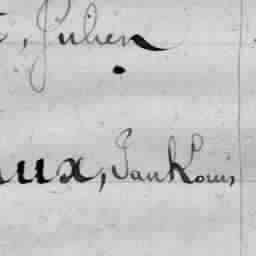 , Julien
aux, Jan Louis